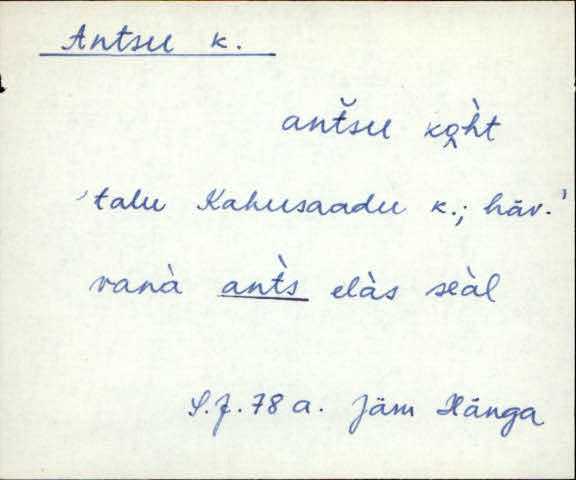 Antsu k.
anťsu ko̭h̀t
'talu Kahusaadu k.; häv.'
vanà ant̀s elàs seàl
S.J. 78 a. Jäm Hänga